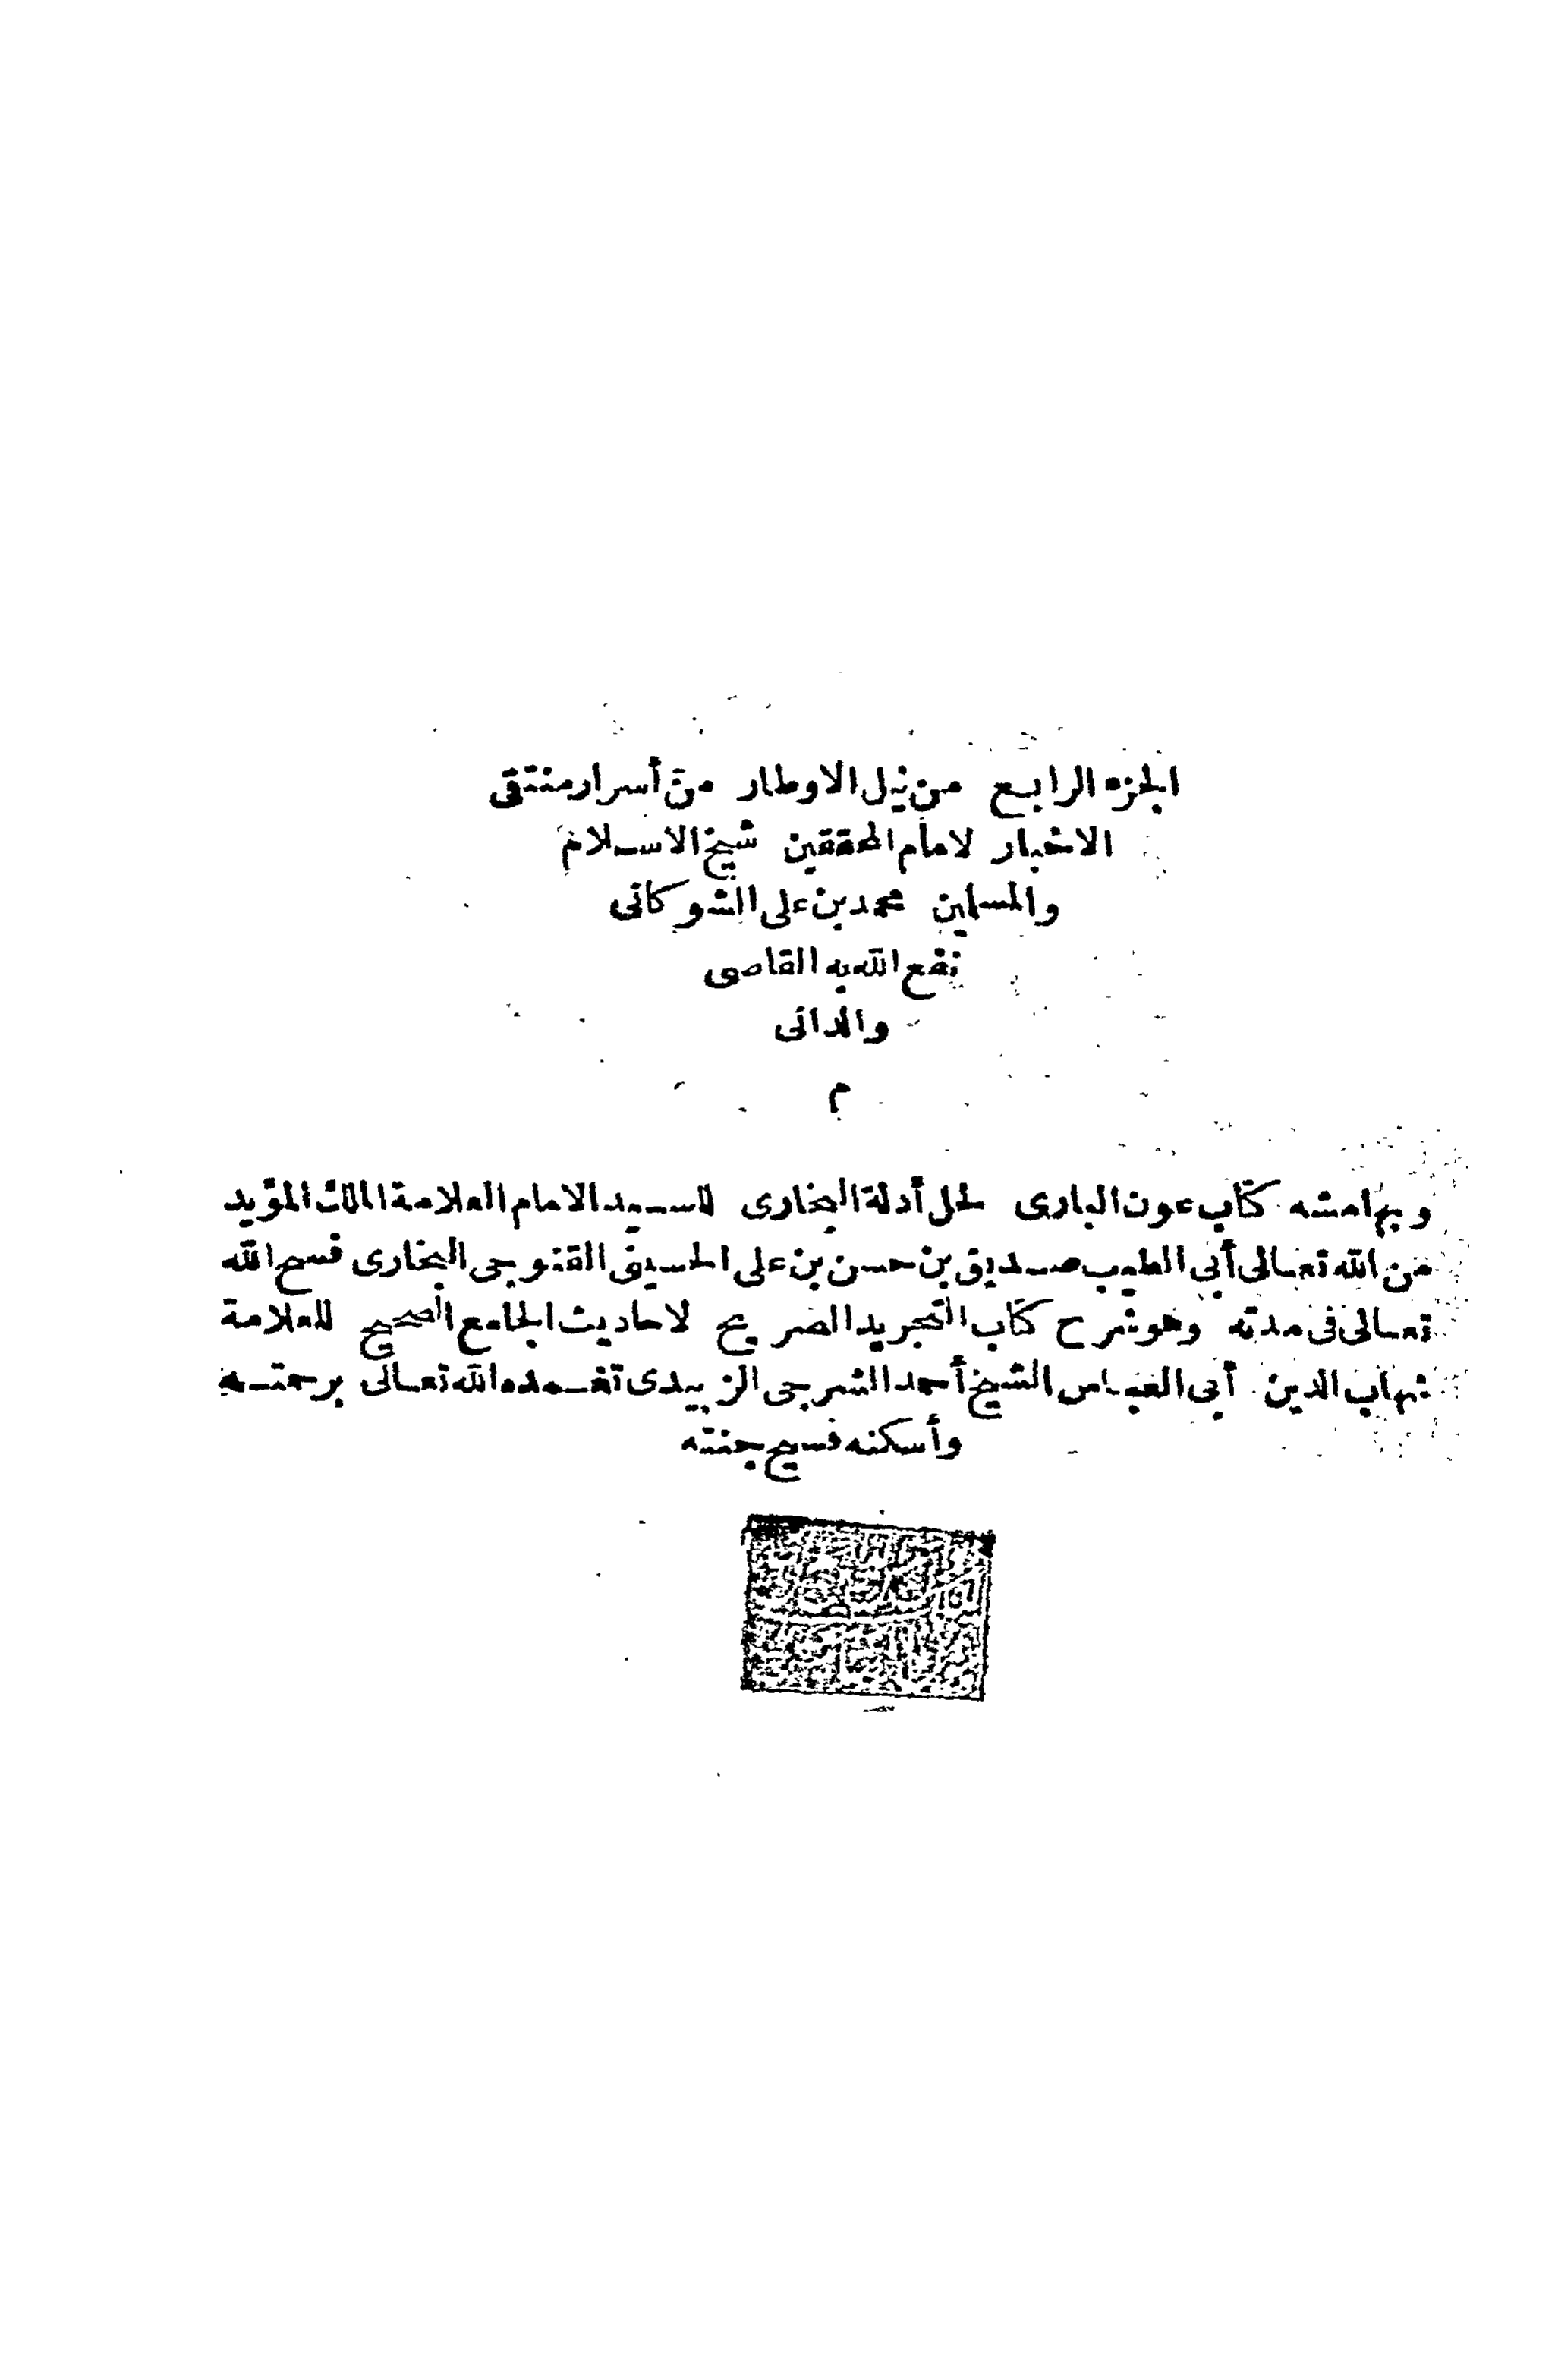 الجزء الرابع من نيل الاوطار من أسرار منتقى
الاخبار لامام المحققين شيخ الاسلام
والمسلمين محمد بن على الشوكانى
نفع الله به القاصى
والدانى
م
وبهامشه كتاب عون البارى لحل أدلة البخارى للسيد الامام العلامة الملك المؤيد
من الله تعالى أبى الطيب صديق بن حسن بن على الحسينى القنوجى البخارى فسح الله
تعالى فى مدته وهو شرح كتاب التجريد الصريح لاحاديث الجامع الصحيح للعلامة
شهاب الدين أبى العباس الشيخ أحمد الشرجى الزبيدى تغمده الله تعالى برحمته
وأسكنه فسيح جنته